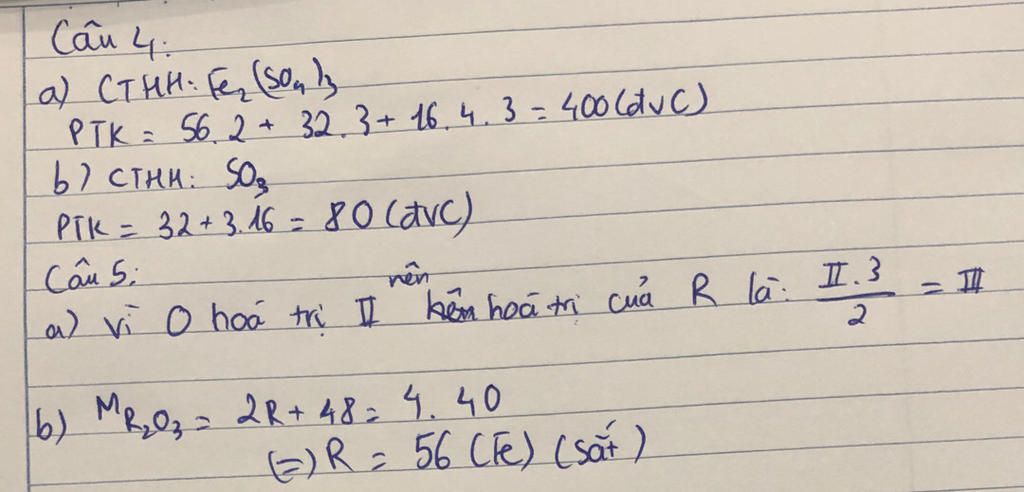 Câu 4:
a) CTHH: Fe₂(SO₄)₃
PTK = 56.2 + 32.3 + 16.4.3 = 400(đvC)
b) CTHH: SO₃
PTK = 32 + 3.16 = 80 (đvC)
Câu 5:
a) vì O hoá trị II nên hoá trị của R là: II.3/2 = III
b) M R₂O₃ = 2R + 48 = 4.40
(=) R = 56 (Fe) (sắt)